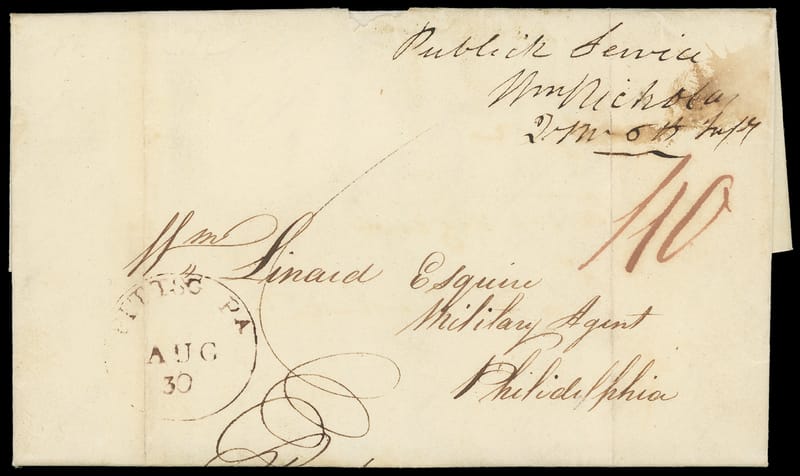 Publick Service
Wm Nicholas
6th Inf
110
Wm Linard Esquire
Military Agent
Philidelphia
PITTSG PA
AUG
30